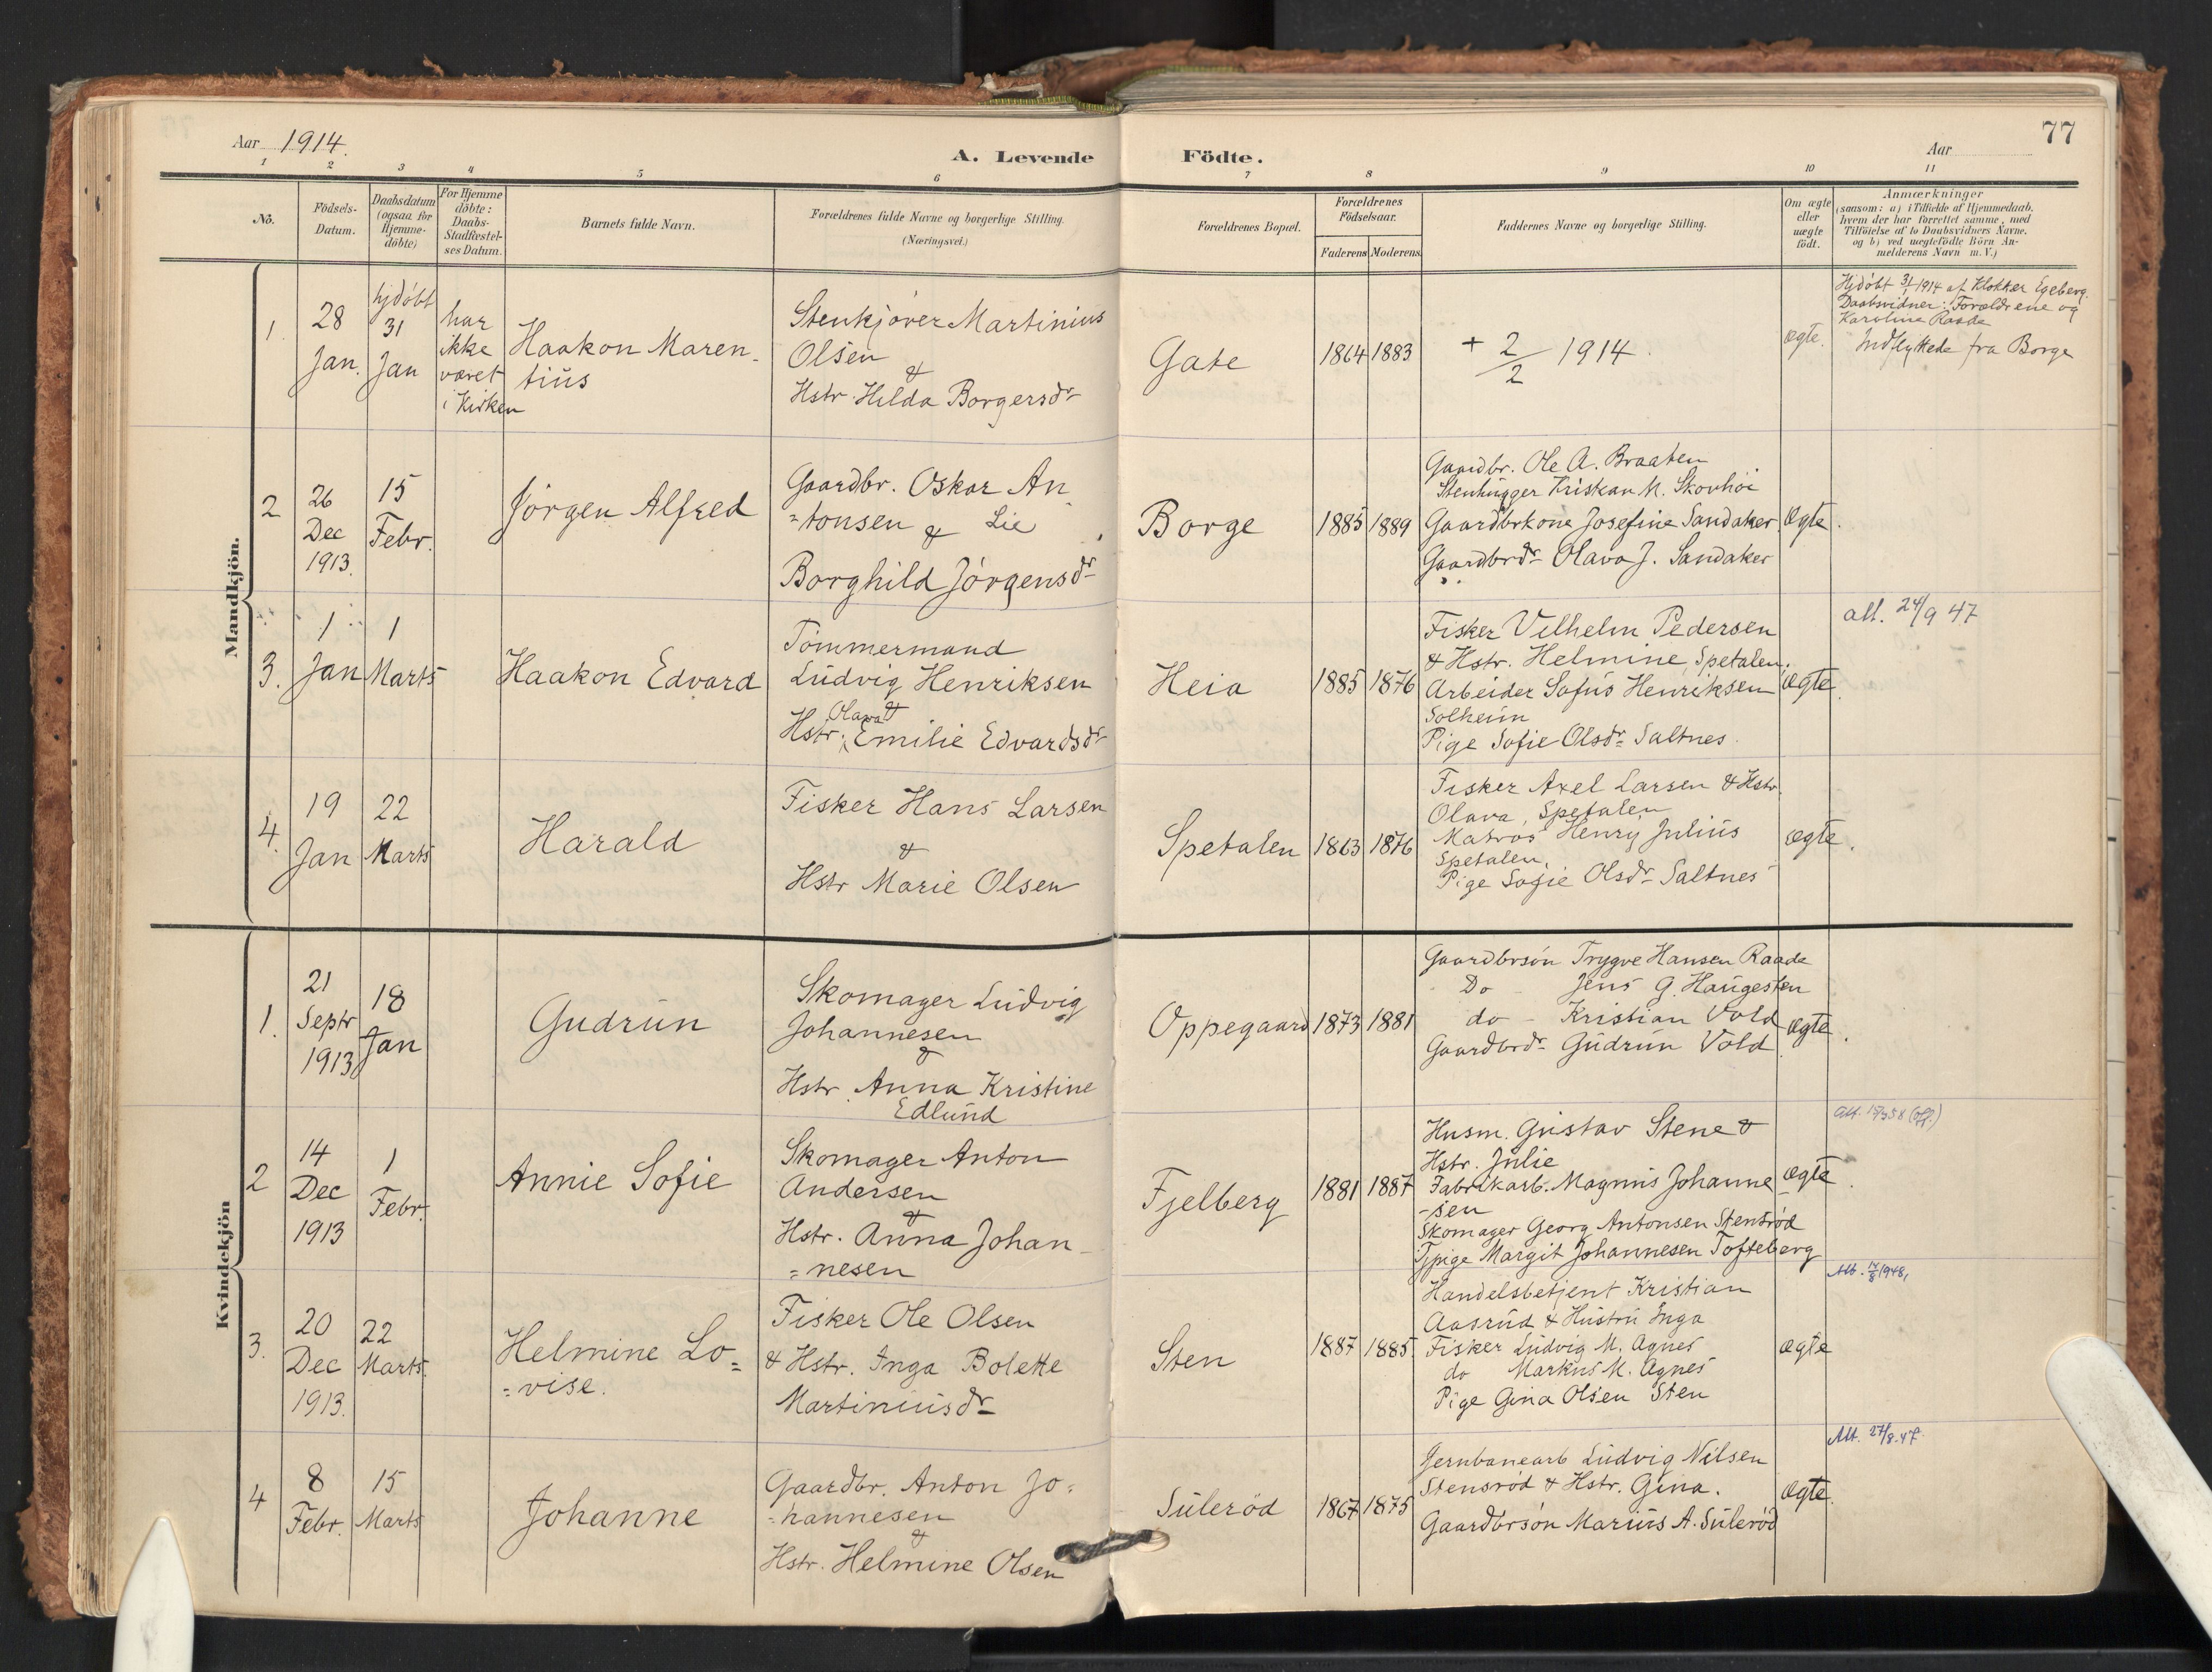 Aar 1914.
A. Levende Födte.
Aar
77
1 2 3 4 5 6 7 8 9 10 11
No.
Födsels-
Datum.
Daabsdatum
(ogsaa for
Hjemme-
döbte)
For Hjemme
döbte:
Daabs-
Stadfæstel-
ses Datum.
Barnets fulde Navn.
Forældrenes fulde Navne og borgerlige Stilling.
(Næringsvei.)
Forældrenes Bopæl.
Forældrenes
Födselsaar.
Faderens Moderens
Faddernes Navne og borgerlige Stilling.
Om ægte
eller
uægte
födt.
Anmærkninger
(saasom: a) i Tilfælde af Hjemmedaab,
hvem der har forrettet samme, med
Tilföielse af to Daabsvidners Navne.
og b) ved uægtefödte Börn An-
melderens Navn m.V.)
Mandkjön.
1.
28
Jan.
hjdöbt
31
Jan
har
ikke
været
i Kirken
Haakon Maren-
tius
Stenkjörer Martinius
Olsen
&
Hstr. Hilda Borgersdr
Gate
1864 1883
+ 2/2 1914.
ægte.
Hjdöbt 31/1 1914 af Klokker Egeberg.
Daabsvidner: Forældrene og
Karoline Raade
Indflyttede fra Borge
2
26
Dec
1913.
15
Febr.
Jörgen Alfred
Gaardbr. Oskar An-
=tonsen & Lie
Borghild Jörgensdr
Borge
1885 1889
Gaardbr. Ole A. Braaten
Stenhugger Kristian M. Skovhöi
Gaardbrkone Josefine Sandaker
Gaardbrdr Olava J. Sandaker
Ægte.
3.
1
Jan
1
Marts
Haakon Edvard
Tömmermand
Ludvig Henriksen
&
Hstr. Olava Emilie Edvardsdr
Heia
1885 1876
Fisker Vilhelm Pedersen
& Hstr. Helmine, Spetalen.
Arbeider Sofus Henriksen
Solheim
Pige Sofie Olsdr Saltnes.
Ægte.
att. 24/9 47
4.
19
Jan
22
Marts
Harald
Fisker Hans Larsen
&
Hstr Marie Olsen
Spetalen
1863 1876
Fisker Axel Larsen & Hstr.
Olava, Spetalen
Matros Henry Julius
Spetalen.
Pige Sofie Olsdr Saltnes
ægte.
Kvindekjön
1.
21
Septr
1913
18
Jan
Gudrun
Skomager Ludvig
Johannesen
&
Hstr. Anna Kristine
Edlund
Oppegaard
1873 1881
Gaardbrsön Trygve Hansen Raade
Do - Jens G. Haugesten
do - Kristian Vold
Gaardbrdr Gudrun Vold
Ægte.
2
14
Dec
1913
1
Febr.
Annie Sofie
Skomager Anton
Andersen
&
Hstr. Anna Johan-
=nesen
Fjelberg
1881 1887
Husm. Gustav Stene &
Hstr. Julie
Fabrikarb. Magnus Johanne
-sen
Skomager Georg Antonsen Stensröd
Tjpige Margit Johannesen Tofteberg
ægte.
3.
20
Dec
1913.
22
Marts.
Helmine Lo=
=vise.
Fisker Ole Olsen
& Hstr. Inga Bolette
Martiniusdr
Sten
1887 1885
Handelsbetjent Kristian
Aasrud & Hustru Inga
Fisker Ludvig M. Agnes
do Markus M. Agnes
Pige Gina Olsen Sten
ægte
Att. 17/8 1948,
4
8
Febr.
15
Marts
Johanne
Gaardbr. Anton Jo=
=hannesen
&
Hstr. Helmine Olsen
Suleröd
1867 1875
Jernbanearb Ludvig Nilsen
Stensröd & Hstr. Gina.
Gaardbrsön Marius A. Suleröd
Ægte.
Att. 27/8.47.